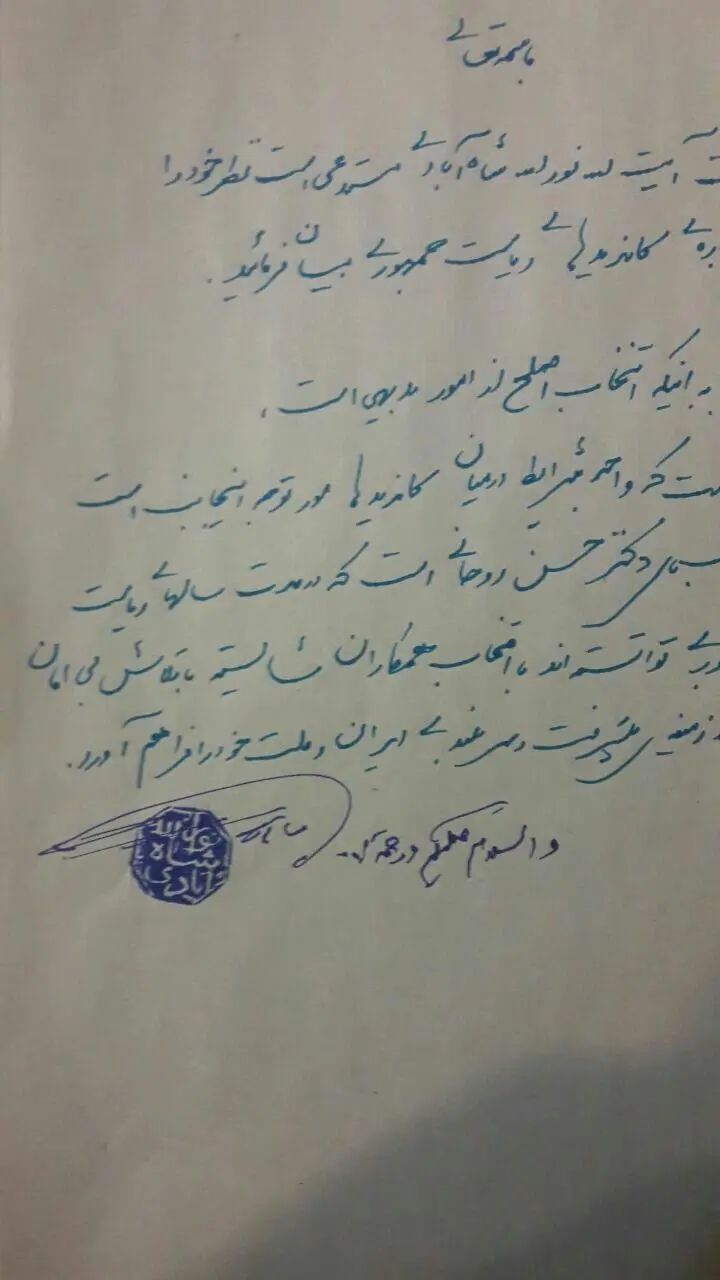 باسمه تعالی
آیت الله نورالله شاه آبادی مستدعی است نظر خود را
کاندیدهای ریاست جمهوری بیان فرمائید.
به اینکه انتخاب اصلح از امور بدیهی است،
که واجد شرایط درمیان کاندیدها مورد توجه اینجانب است
دکتر حسن روحانی است که در مدت سالهای ریاست
توانسته اند با انتخاب همکاران شایسته با تلاش بی امان
پیشرفت و سربلندی ایران و ملت خود را فراهم آورد.
والسلام علیکم ورحمة الله
نورالله
شاه
آبادی